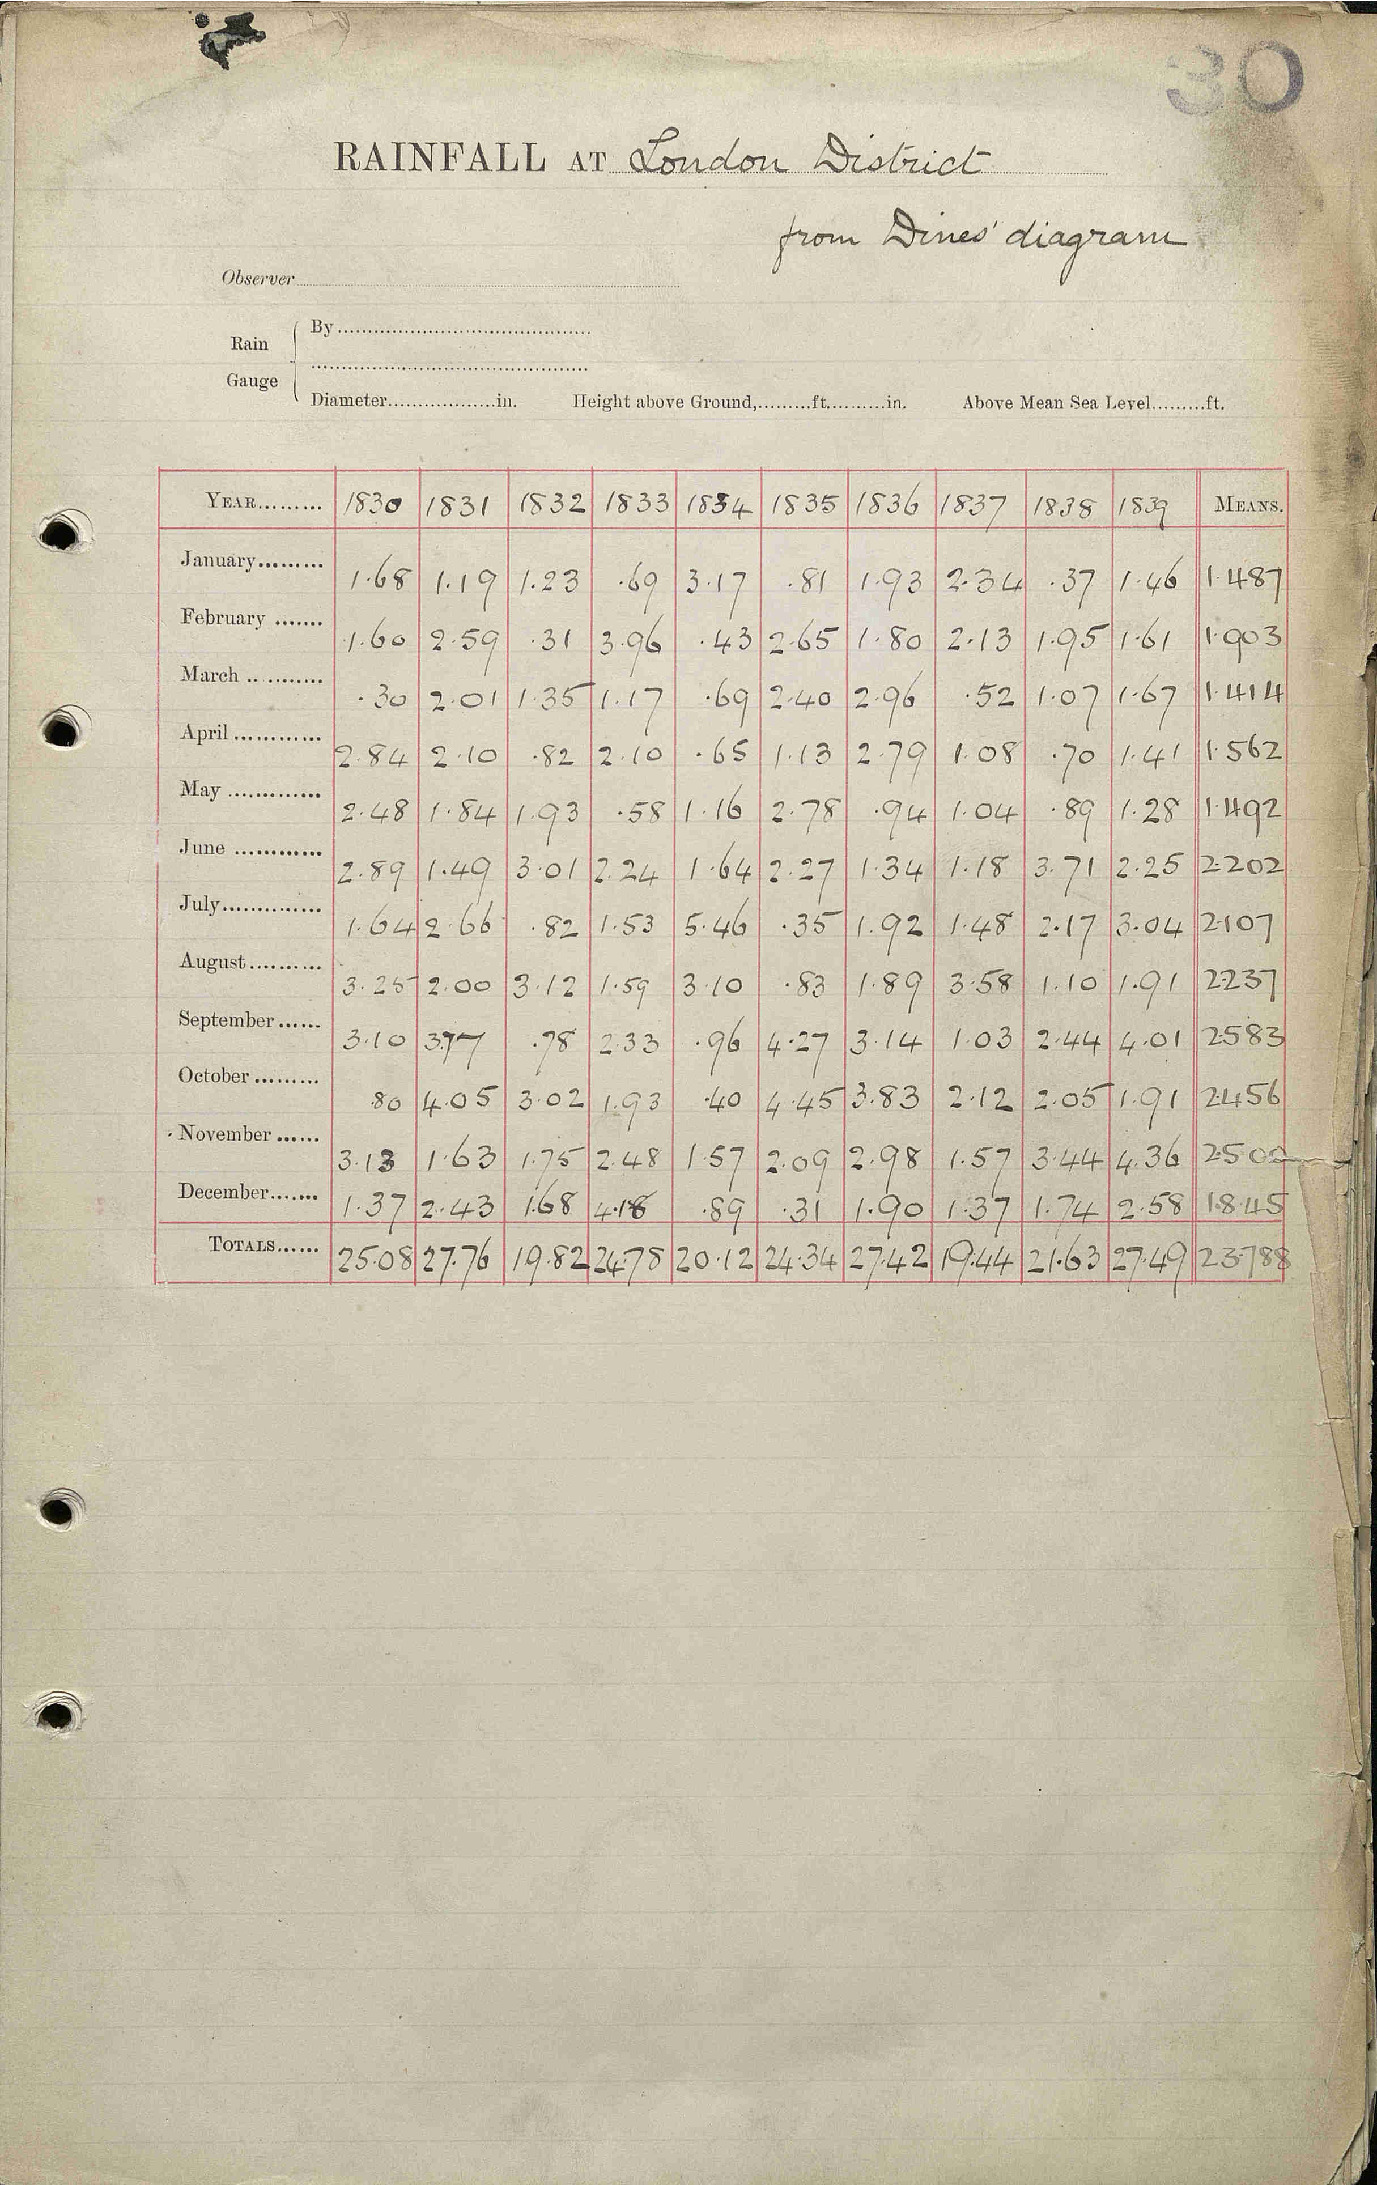 30
RAINFALL AT London District
from Dines' diagram
Observer
Rain Gauge
By
Diameter in. Height above Ground, ft. in. Above Mean Sea Level ft.
YEAR 1830 1831 1832 1833 1834 1835 1836 1837 1838 1839 MEANS.
January 1.68 1.19 1.23 .69 3.17 .81 1.93 2.34 .37 1.46 1.487
February 1.60 2.59 .31 3.96 .43 2.65 1.80 2.13 1.95 1.61 1.903
March .30 2.01 1.35 1.17 .69 2.40 2.96 .52 1.07 1.67 1.414
April 2.84 2.10 .82 2.10 .65 1.13 2.79 1.08 .70 1.41 1.562
May 2.48 1.84 1.93 .58 1.16 2.78 .94 1.04 .89 1.28 1.492
June 2.89 1.49 3.01 2.24 1.64 2.27 1.34 1.18 3.71 2.25 2.202
July 1.64 2.66 .82 1.53 5.46 .35 1.92 1.48 2.17 3.04 2.107
August 3.25 2.00 3.12 1.59 3.10 .83 1.89 3.58 1.10 1.91 2.237
September 3.10 3.77 .78 2.33 .96 4.27 3.14 1.03 2.44 4.01 2.583
October .80 4.05 3.02 1.93 .40 4.45 3.83 2.12 2.05 1.91 2.456
November 3.13 1.63 1.75 2.48 1.57 2.09 2.98 1.57 3.44 4.36 2.500
December 1.37 2.43 1.68 4.18 .89 .31 1.90 1.37 1.74 2.58 1.845
TOTALS 25.08 27.76 19.82 24.78 20.12 24.34 27.42 19.44 21.63 27.49 23.788